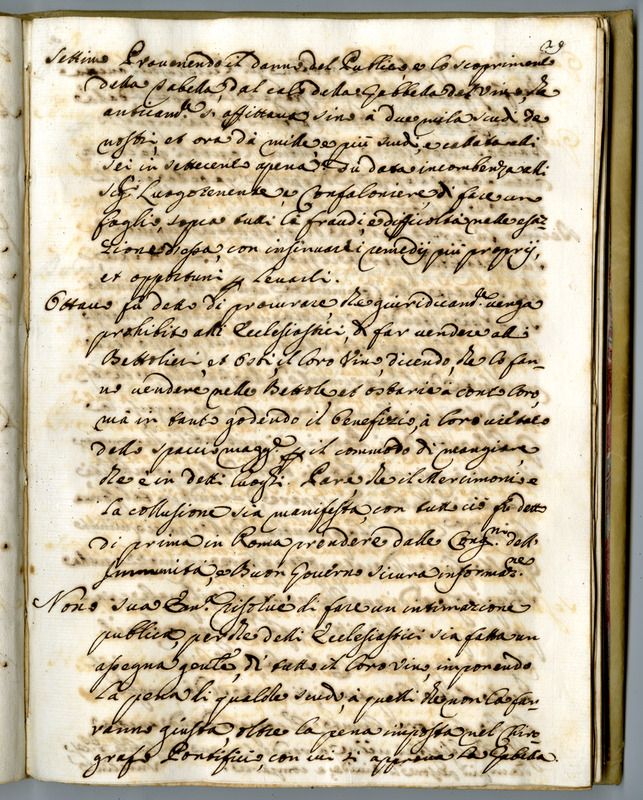 29
Settimo Provenendo il danno del Publico e lo scoprimento
della Gabella, dal calo della Gabbella del Vino, che
anticam.e si affittava sino à due mila scudi de
nostri, et ora dà mille, e più scudi, e callata alli
sei in settecento apena, fù data incombenza alli
SS.ri Luogotenente, e Confaloniere, di fare un
foglio, sopra tutti le fraudi, e difficoltà nelle esat-
tione di essa, con insinuare i remedij più proprij,
et opportuni p levarli.
Ottavo fù detto di procurare che giuridicam.e venga
prohibito alli Ecclesiastici, di far vendere alli
Bettolieri, et Osti, il loro Vino, dicendo, che lo fan-
no vendere nelle Bettole et ostarie à conto loro,
mà in tanto godendo il benefizio, à loro vietato
dello spaccio magg.re p il commodo di mangiare
che è in detti luoghi. Pare che il Mercimonio, e
la collusione sia manifesta, con tutto ciò fù detto
di prima in Roma prendere dalle Cong.ni dell'
Immunità, e Buon Governo sicura informaz.ne
Nono sua Em.za risolvè di fare un intimazione
publica, perche detti Ecclesiastici sia fatta un
assegna gen.le, di tutto il loro Vino, imponendo
la pena di qualche scudo, à quelli che non la fa-
ranno giusta, oltre la pena imposta nel Chiro
grafo Pontificio, con cui si approva la Gabella.